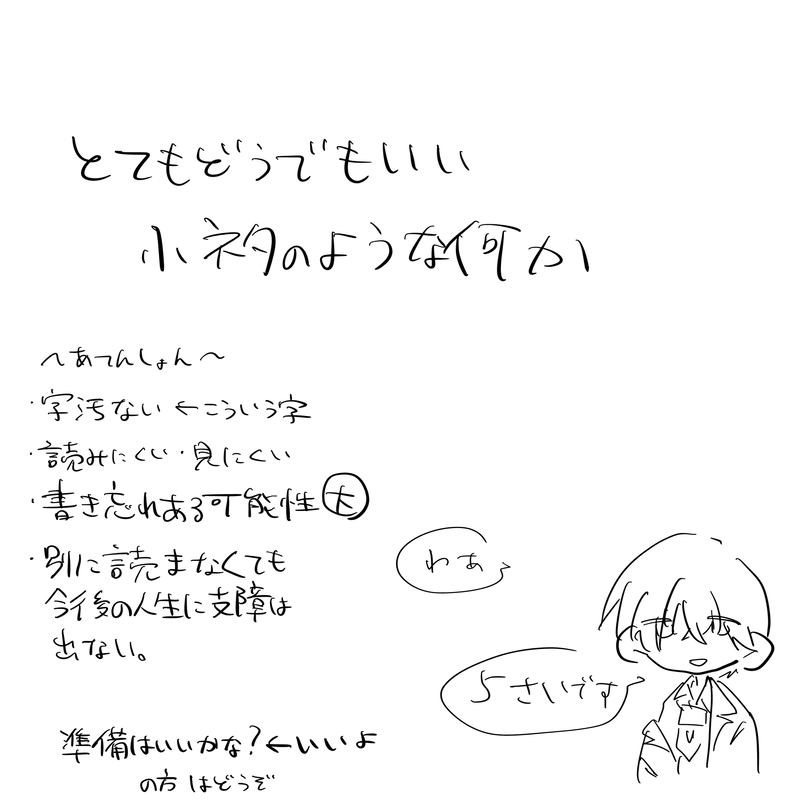 とてもどうでもいい
小ネタのような何か
〜あてんしょん〜
・字汚ない ←こういう字
・読みにくい・見にくい
・書き忘れある可能性大
・別に読まなくても
今後の人生に支障は
出ない。
わぁ
5さいです
準備はいいかな？←いいよ
の方はどうぞ